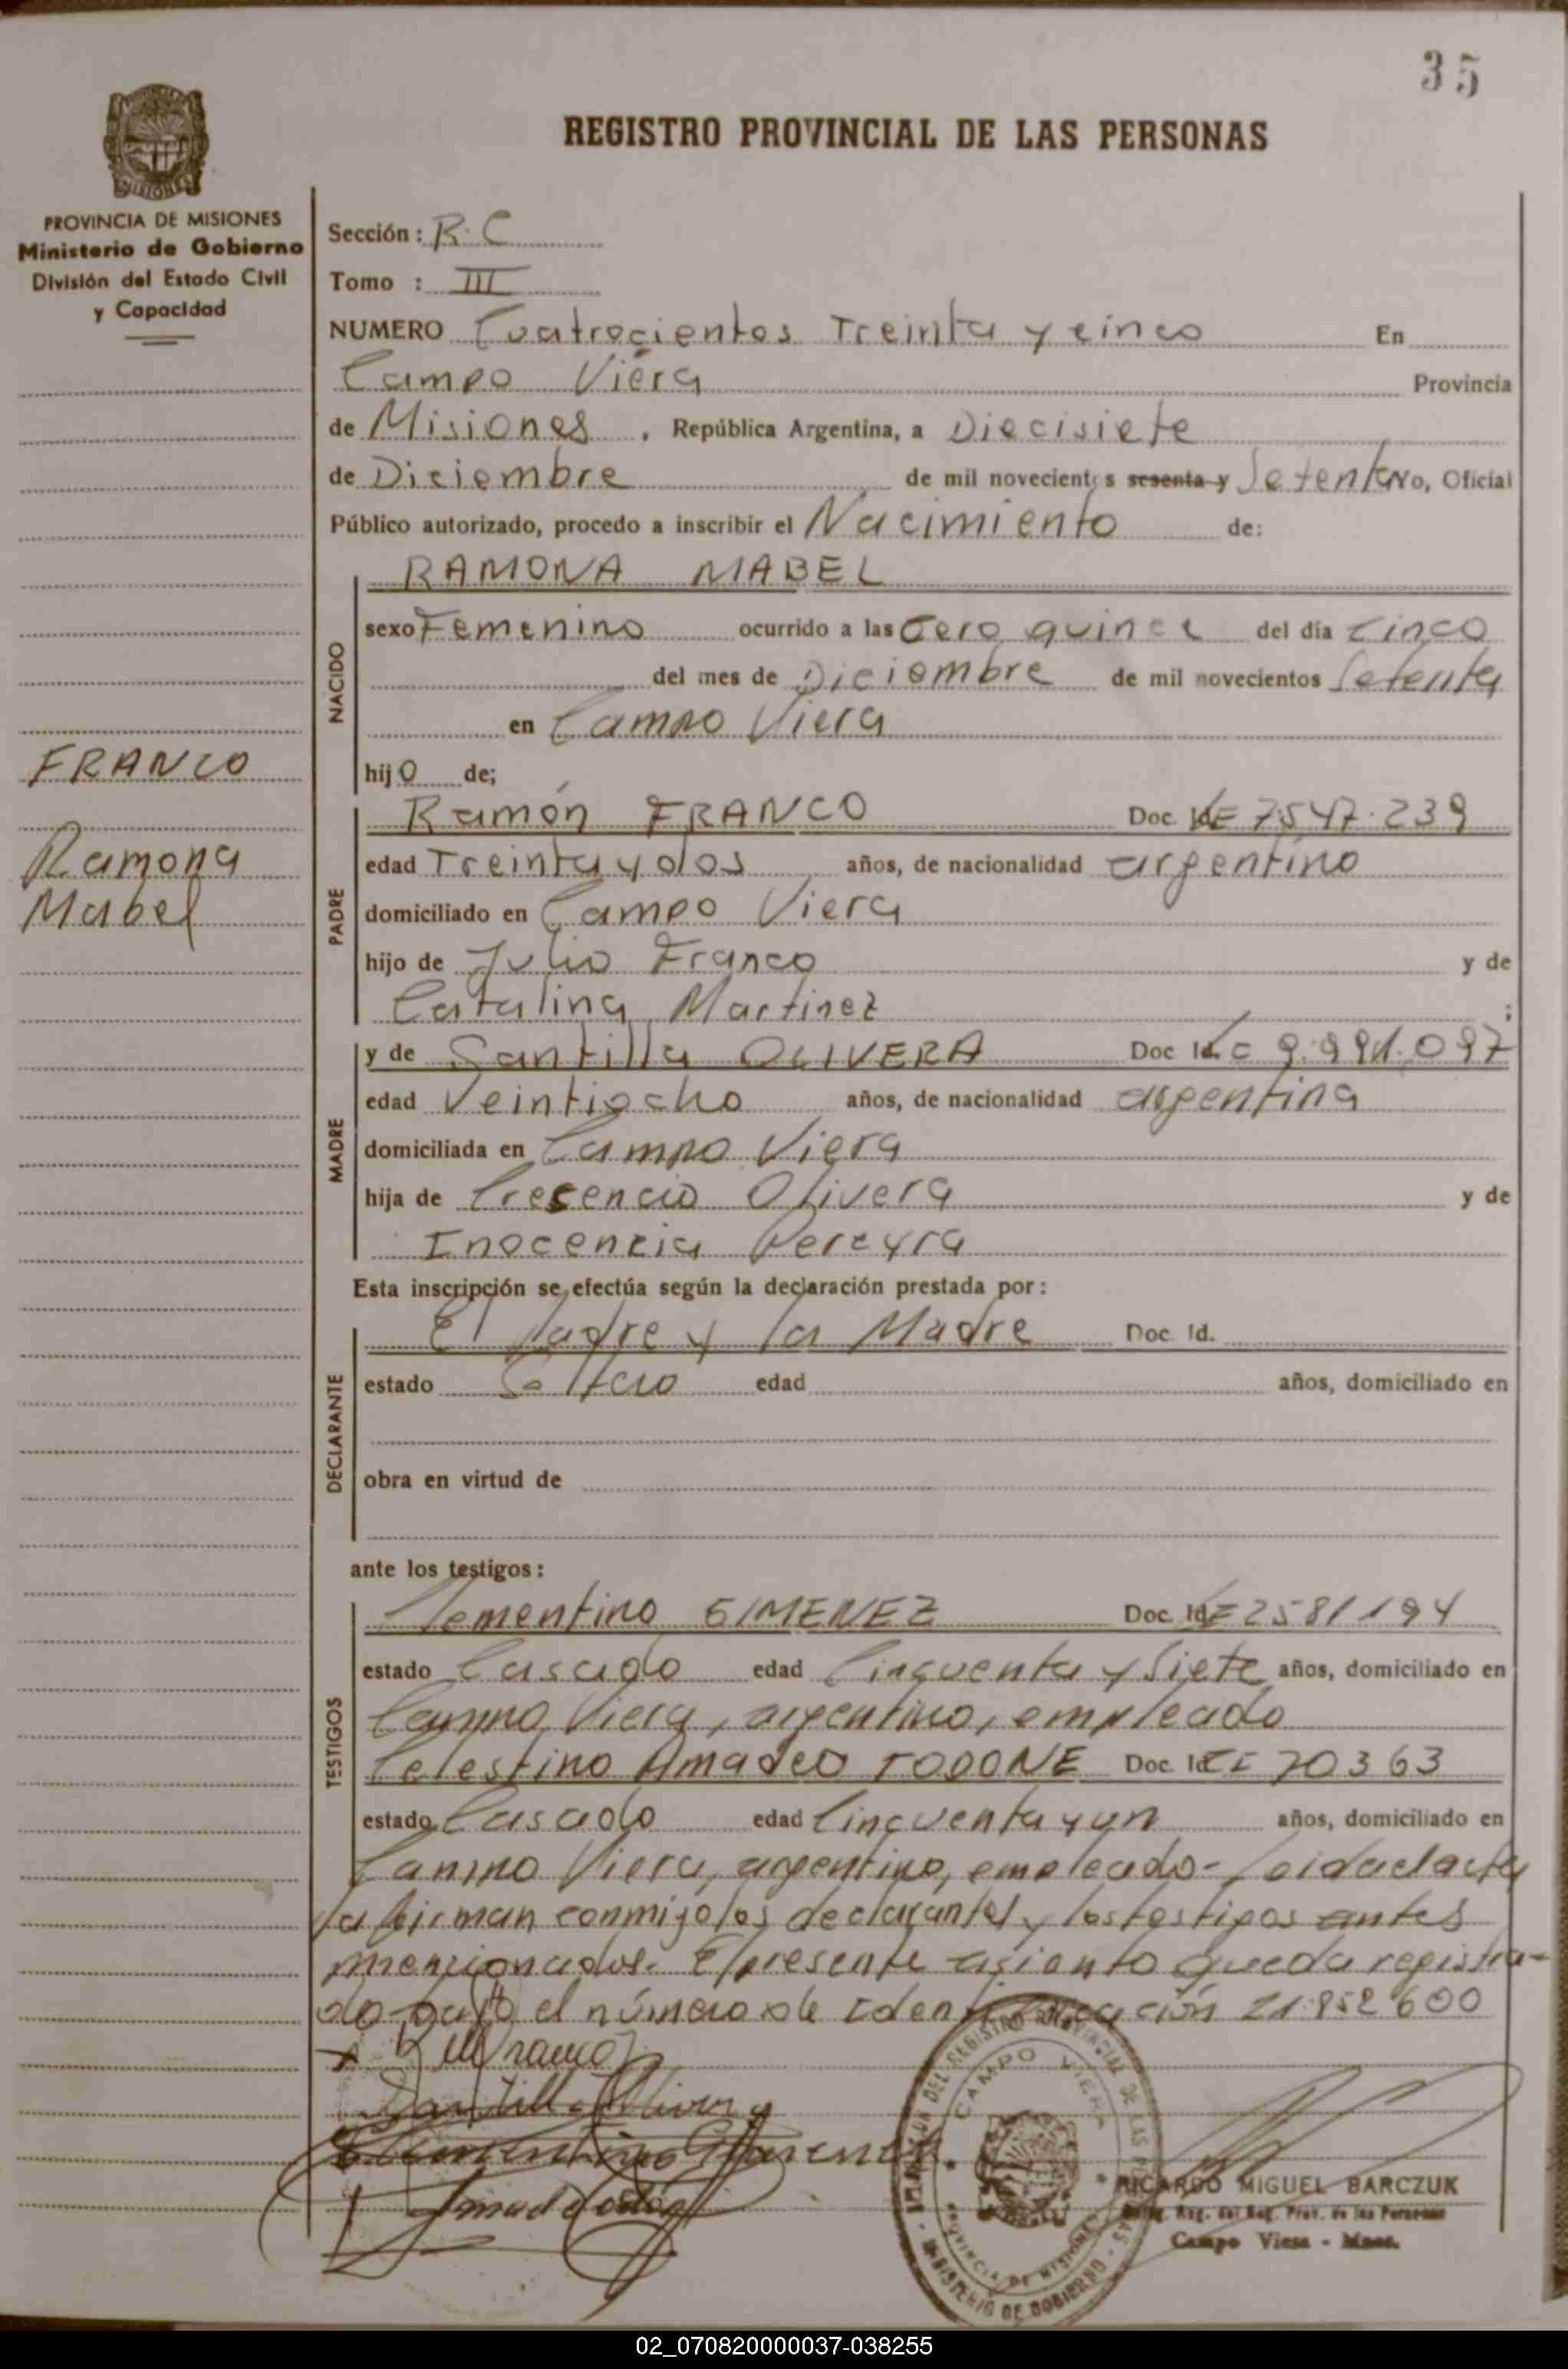 35
REGISTRO PROVINCIAL DE LAS PERSONAS
MISIONES
PROVINCIA DE MISIONES
Ministerio de Gobierno
División del Estado Civil
y Capacidad
FRANCO
Ramona
Mabel
Sección: R.C
Tomo : III
NUMERO Cuatrocientos Treinta y cinco En
Campo Viera Provincia
de Misiones, República Argentina, a Diecisiete
de Diciembre de mil novecientos sesenta y Setenta Yo, Oficial
Público autorizado, procedo a inscribir el Nacimiento de:
NACIDO
RAMONA MABEL
sexo Femenino ocurrido a las Cero quince del día Cinco
del mes de Diciembre de mil novecientos Setenta
en Campo Viera
hijO de;
PADRE
Ramón FRANCO Doc. Id. LE 7547.239
edad Treinta y dos años, de nacionalidad argentino
domiciliado en Campo Viera
hijo de Julio Franco y de
Catalina Martinez ;
MADRE
y de Santilla OLIVERA Doc Id. 9.991.097
edad Veintiocho años, de nacionalidad argentina
domiciliada en Campo Viera
hija de Cresencio Olivera y de
Inocencia Pereyra
Esta inscripción se efectúa según la declaración prestada por:
DECLARANTE
El Padre y la Madre Doc. Id.
estado Soltero edad años, domiciliado en
obra en virtud de
ante los testigos:
TESTIGOS
Clementino GIMENEZ Doc. Id. LE 2581194
estado Casado edad Cincuenta y Siete años, domiciliado en
Campo Viera, argentino, empleado
Celestino Amadeo TODONE Doc. Id. 70363
estado Casado edad Cincuenta y un años, domiciliado en
Campo Viera, argentino, empleado - Leida el acta
la firman conmigo los declarantes y los testigos antes
mencionados. El presente asiento queda registra-
do bajo el número de Identificación 21.852600
Franco
Santilla Olivera
Clementino Gimenez
DEL REGISTRO PROVINCIAL DE LAS PERSONAS
CAMPO VIERA
PROVINCIA DE MISIONES
MINISTERIO DE GOBIERNO
RICARDO MIGUEL BARCZUK
Reg. del Reg. Prov. de las Personas
Campo Viera - Mnes.
02_070820000037-038255